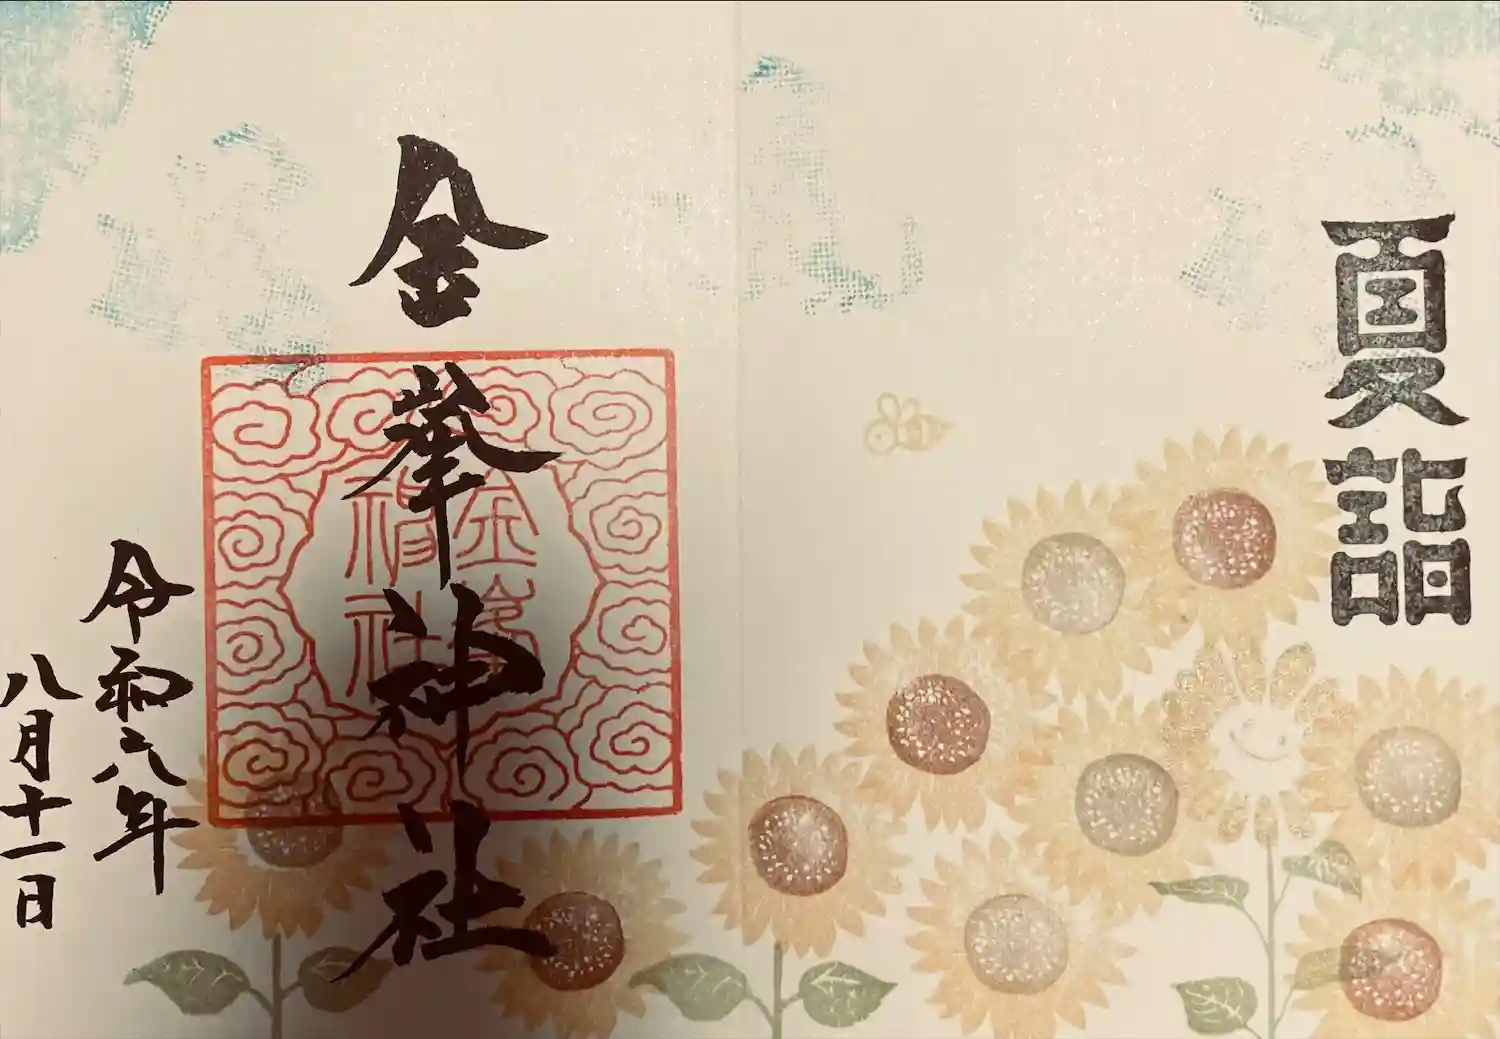 夏詣
金峯神社
金峯
神社
令和六年
八月十一日